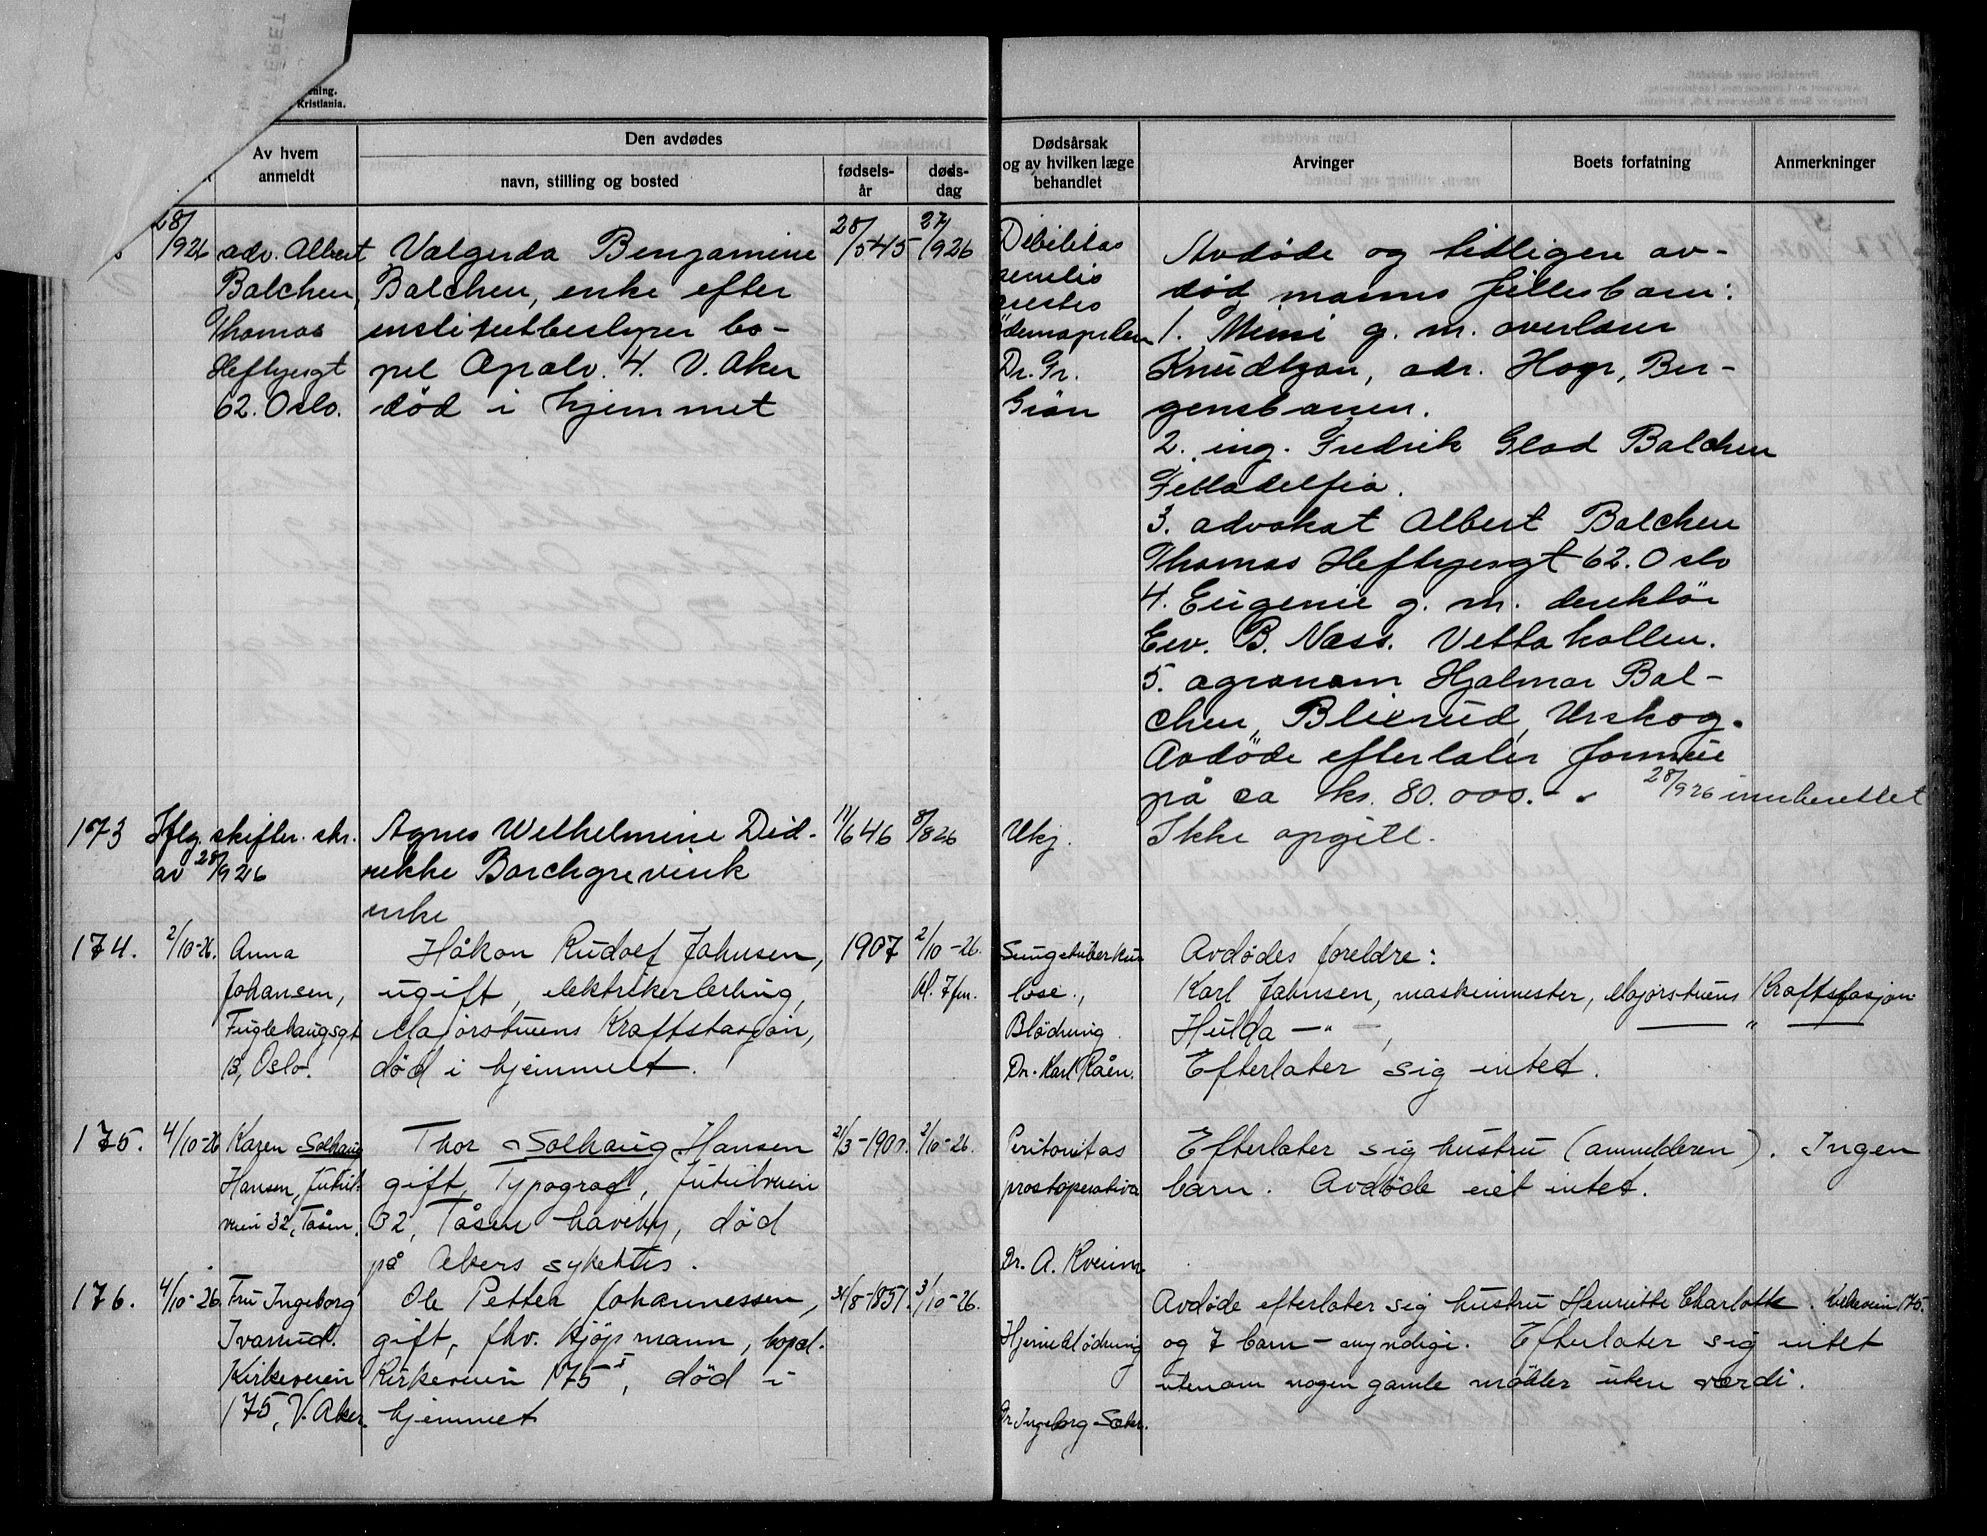 Kristiania.
Av hvem
anmeldt
Den avdødes
navn, stilling og bosted
fødsels-
år
døds-
dag
Dødsårsak
og av hvilken læge
behandlet
Arvinger
Boets forfatning
Anmerkninger
28/926
adv. Albert
Balchen,
Thomas
Heftyesgt
62. Oslo.
Valgerda Benjamine
Balchen, enke efter
institutbestyrer bo-
pel Apalv. 4. V. Aker
død i hjemmet
28/545
27/926
Debilitas
senilis
Dr. Gr.
Grøn
Avdøde og tidligere av-
død manns fellesbarn:
1. Mimi g. m. overlærer
Knudtzon, adr. Hogr, Ber-
gensbanen.
2. ing. Fredrik Glad Balchen
Filladelfia.
3. advokat Albert Balchen
Thomas Heftyesgt 62. Oslo
4. Eugenie g. m. direktør
Eiv. B. Næss. Vettakollen.
5. agronom Hjalmar Bal-
chen, Blierud, Urskog.
Avdøde efterlater formue
på ca kr. 80.000.-
28/926 innberettet
173
Iflg. skifter. skr.
av 28/926
Agnes Wilhelmine Did-
rekke Borchgrevink
enke
11/646
8/826
Ukj.
Ikke opgitt.
174.
2/10-26.
Anna
Johansen,
Fuglehaugsgt
13, Oslo.
Håkon Rudolf Johnsen,
ugift, elektrikerlerling,
Majorstuens Kraftstasjon,
død i hjemmet.
1907
2/10-26.
kl. 7 fm.
Lungetuberku
lose.,
Blødning.
Dr. Karl Råen.
Avdødes foreldre:
Karl Johnsen, maskinmester, Majorstuens Kraftstasjon
Hulda — " —, — " —
Efterlater sig intet.
175.
4/10-26
Karen Solhaug
Hansen, Jutul-
veien 32, Tåsen.
Thor Solhaug Hansen
gift, typograf, Jutulveien
32, Tåsen haveby, død
på Akers sykehus.
21/3-1900.
2/10-26.
Peritonitas
postoperativa
Dr. A. Kveim
Efterlater sig hustru (anmelderen). Ingen
barn. Avdøde eiet intet.
176.
4/10-26
Fru Ingeborg
Ivarrud.
Kirkeveien
175, V. Aker
Ole Petter Johannessen,
gift, fhv. kjøpmann, bopel.
Kirkeveien 175 I, død i
hjemmet
31/8-1851.
3/10-26.
Hjerneblødning
Dr. Ingeborg
Avdøde efterlater sig hustru Henriette Charlotte. Kirkeveien 175.
og 7 barn - myndige. Efterlater sig intet
utenom nogen gamle møbler uten verdi.